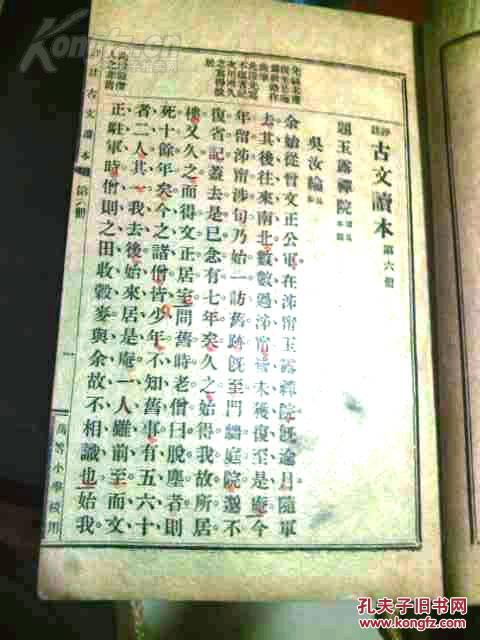 評註
古文讀本 第六冊
題玉露禪院
吳汝綸
余始從曾文正公軍在泲甯玉露禪院既逾月隨軍
去其後往來南北數數過泲甯皆未獲復至是庵今
年留泲甯涉旬乃始一訪舊跡既至門牆庭院邈不
復省記蓋去是已念有七年矣久之始得我故所居
樓又久之而得文正居室問舊時老僧曰脫塵者則
死十餘年矣今之諸僧皆少年不知舊事有五六十
者二人其一我去後始來居是庵一人雖前至而文
正駐軍時僧則之田收穀麥與余故不相識也始我
註古文讀本 第六冊
一
高等小學校用
孔夫子旧书网